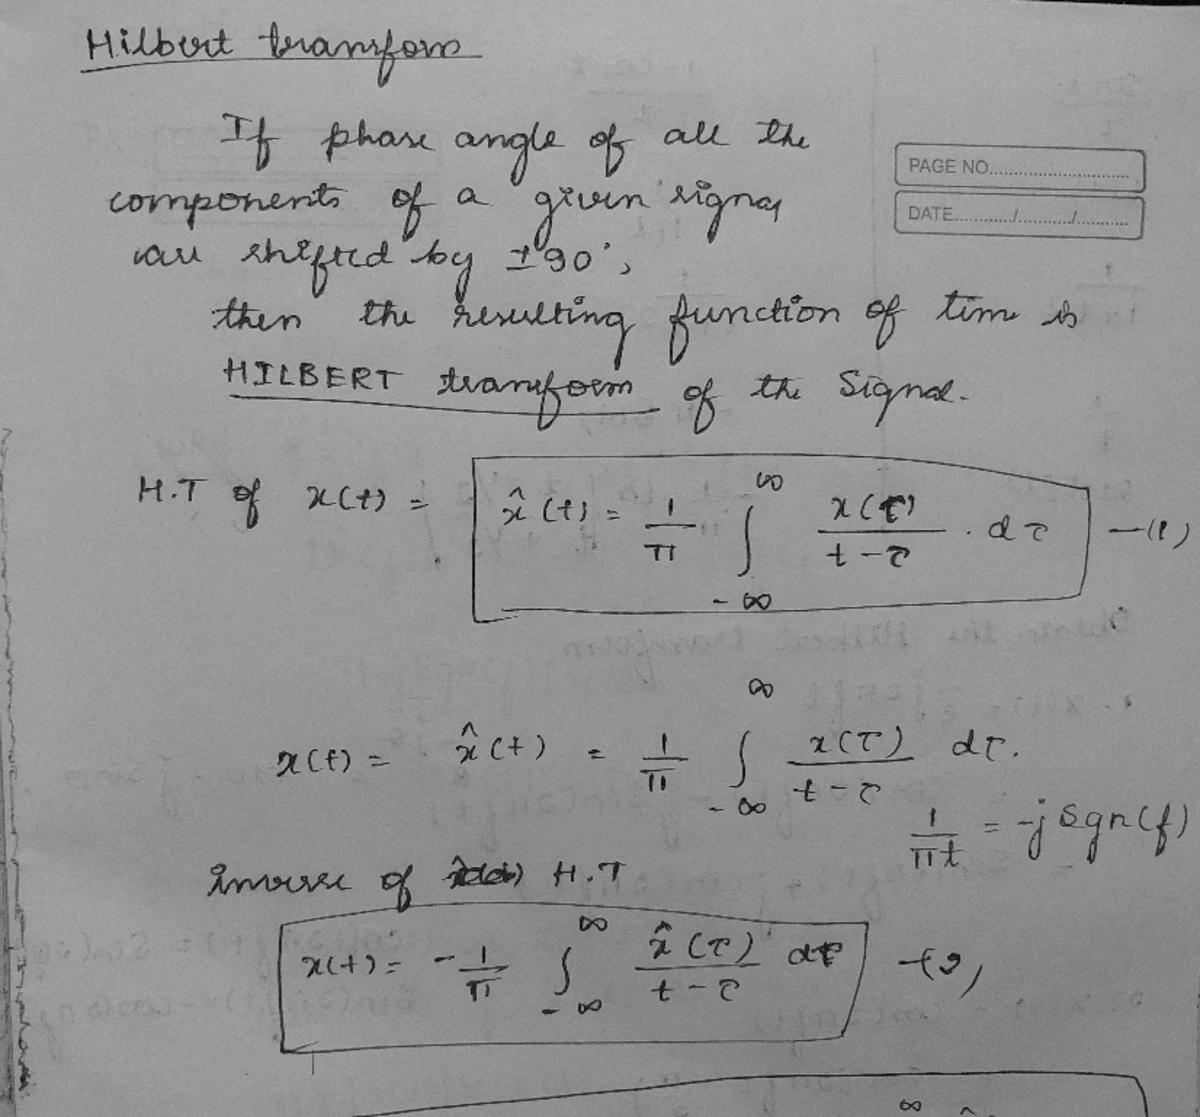 Hilbert transform
If phase angle of all the
PAGE NO.
components of a given signal
DATE / /
are shifted by ±90°,
then the resulting function of time is
HILBERT transform of the Signal.
H.T of x(t) = x̂(t) = 1/π ∫_{-∞}^{∞} x(τ)/(t-τ) . dτ —(1)
x(t) = x̂(t) = 1/π ∫_{-∞}^{∞} x(τ)/(t-τ) dτ.
1/πt = -j sgn(f)
inverse of H.T
x(t) = -1/π ∫_{-∞}^{∞} x̂(τ)/(t-τ) dτ —(2)
∞